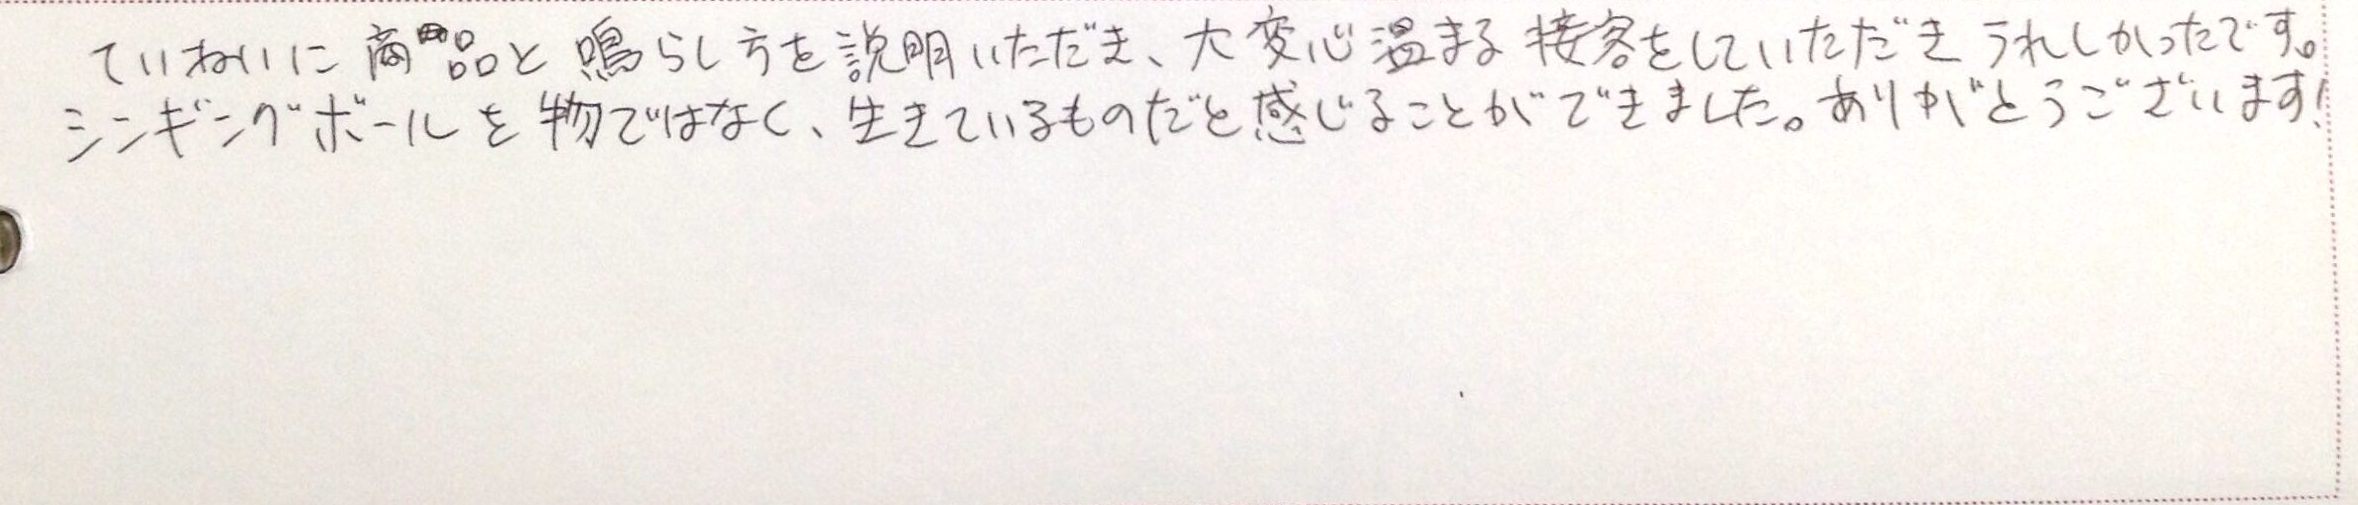 ていねいに商品と鳴らし方を説明いただき、大変心温まる接客をしていただきうれしかったです。
シンギングボールを物ではなく、生きているものだと感じることができました。ありがとうございます!